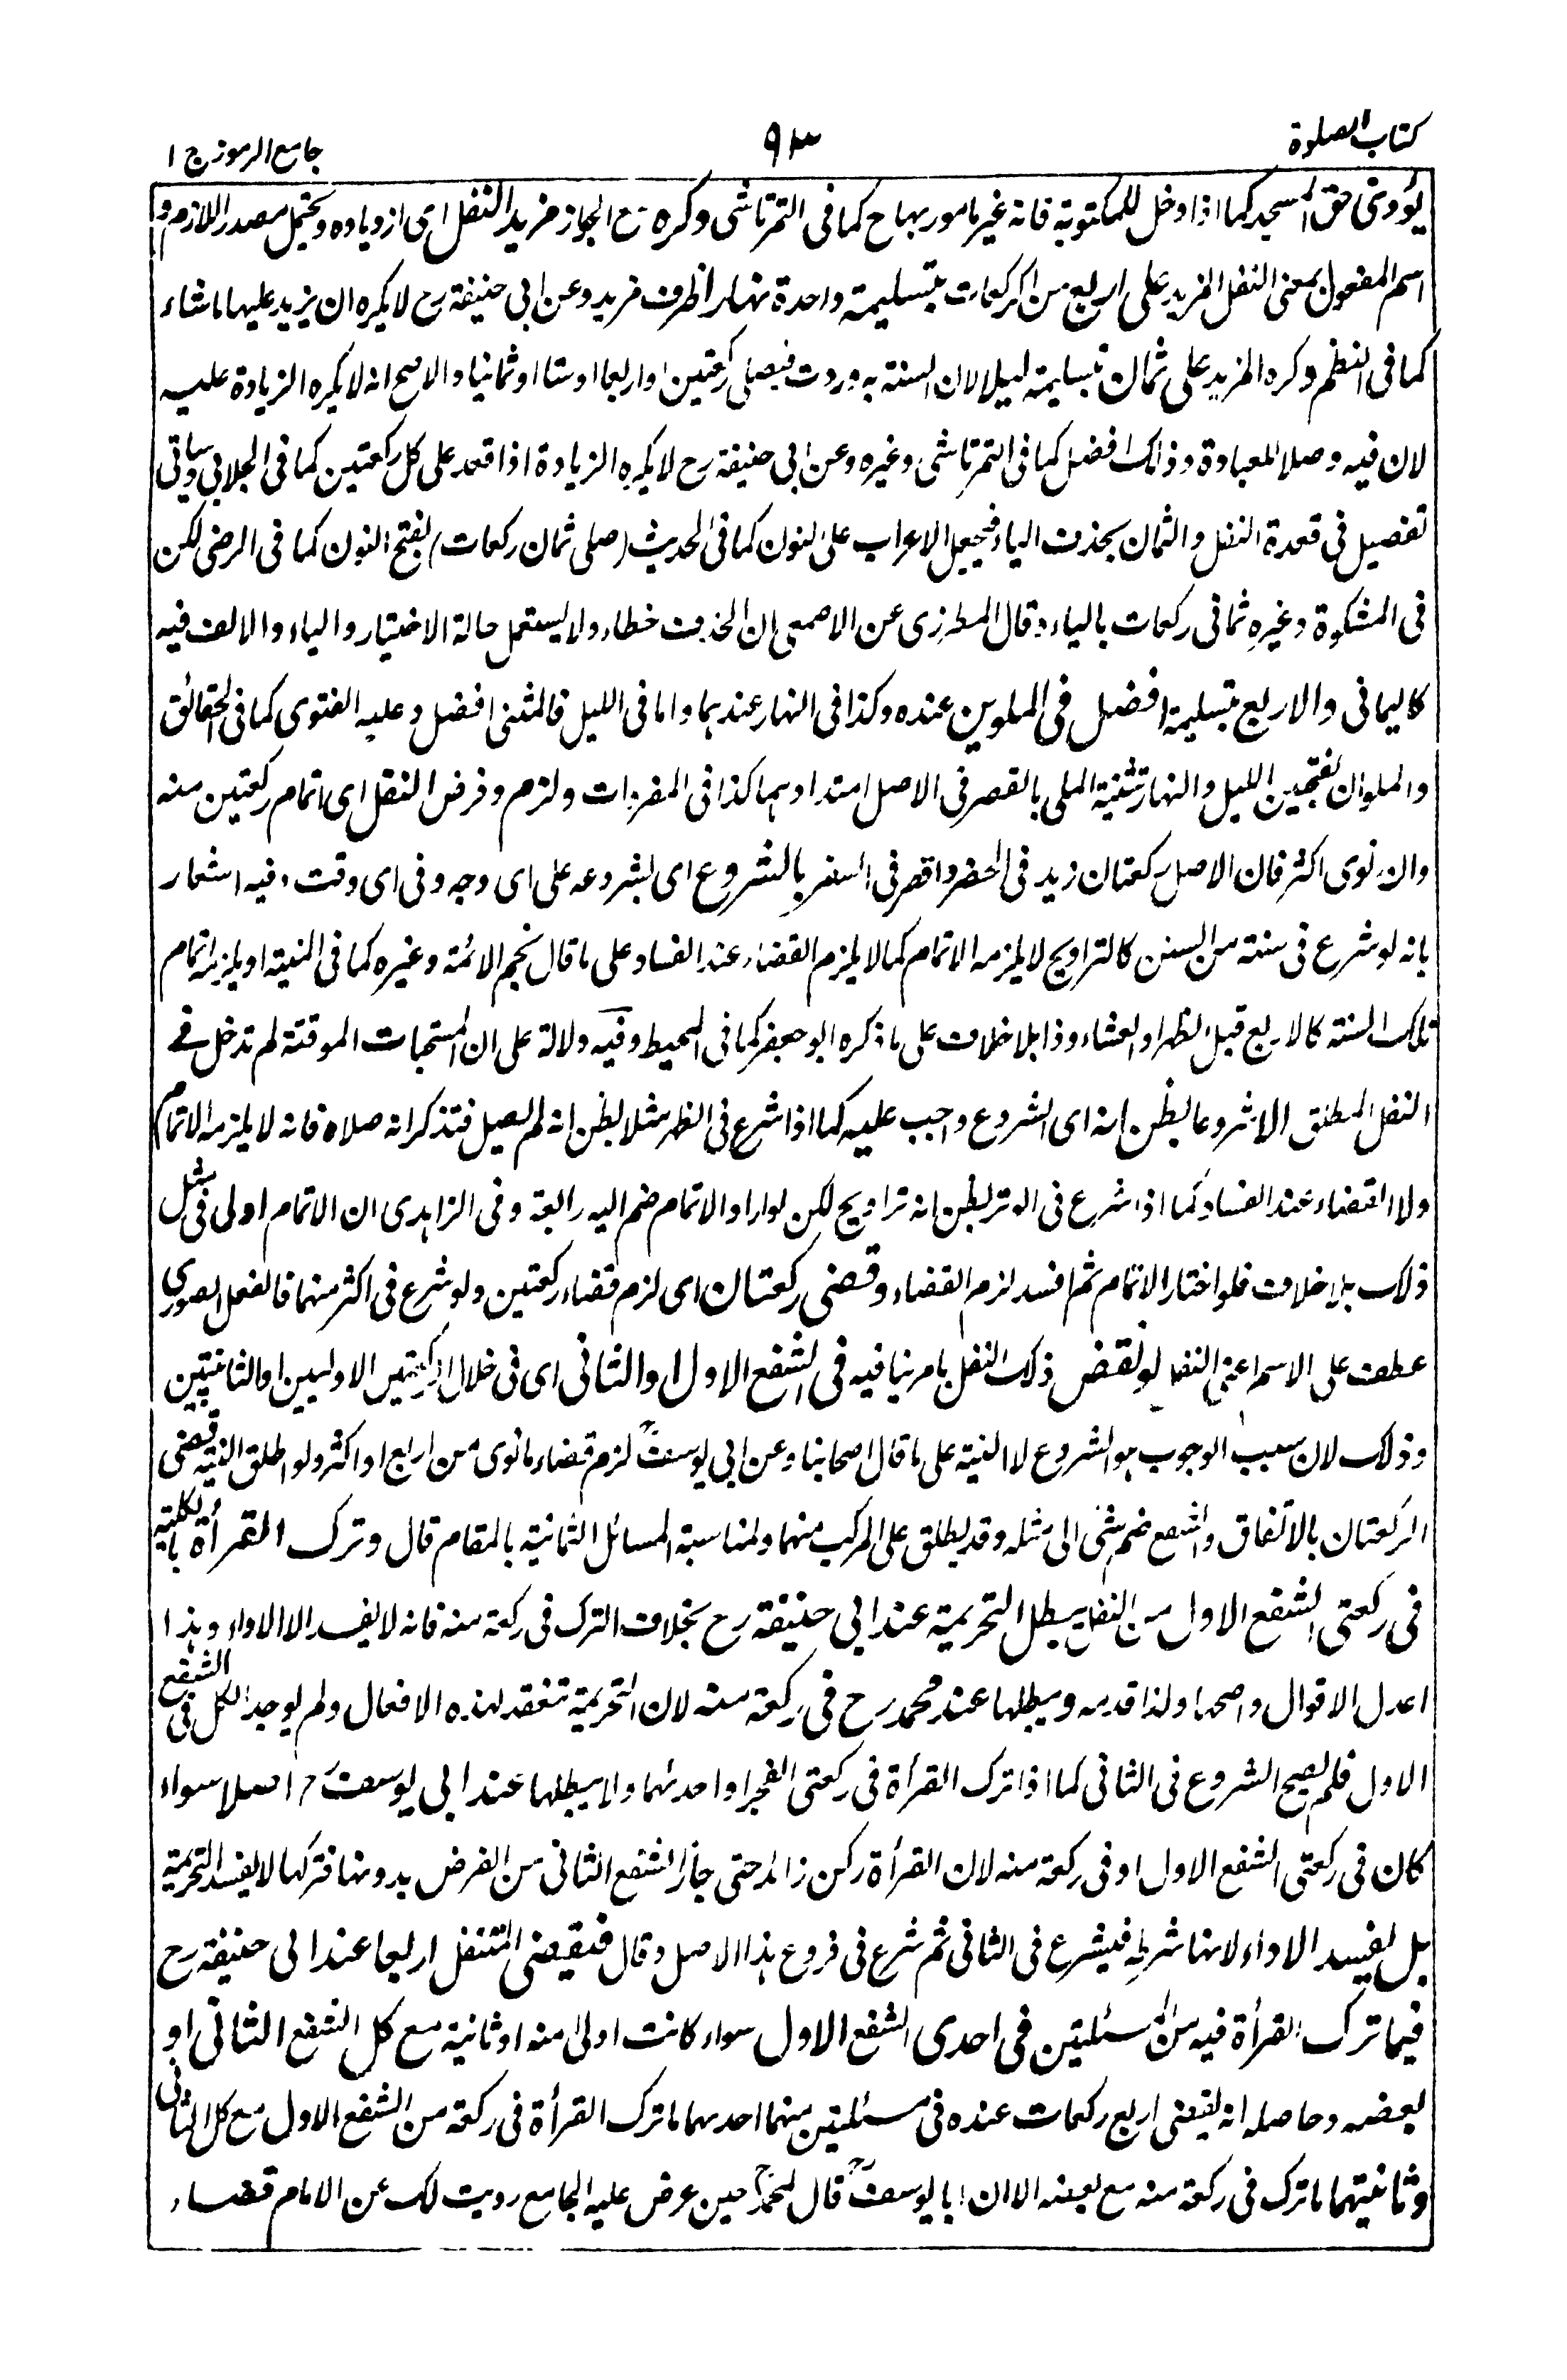 كتاب الصلوة
٩٣
جامع الرموز ج ١
يؤدى حق المسجد كما اذا دخل للمكتوبة فانه غير مامور بها ح كما فى التمرتاشى وكره مع الجواز مزيد النفل اى ازدياده ويحتمل مصدر اللازم و
اسم المفعول بمعنى النفل المزيد على اربع من الركعات بتسليمة واحدة نهارا ظرف مزيد وعن ابى حنيفة رح لا يكره ان يزيد عليها ماشاء
كما فى النظم وكره المزيد على ثمان بتسليمة ليلا لان السنة به وردت فيصلى ركعتين او اربعا او ستا او ثمانيا والاصح انه لا يكره الزيادة عليه
لان فيه وصلا للعبادة وذلك افضل كما فى التمرتاشى وغيره وعن ابى حنيفة رح لا يكره الزيادة اذا قعد على كل ركعتين كما فى الجلابى وسياتى
تفصيل فى قعدة النفل والثمان بحذف الياء فيجعل الاعراب على النون كما فى الحديث (صلى ثمان ركعات) بفتح النون كما فى الرضى لكن
فى المشكوة وغيره ثمانى ركعات بالياء وقال المطرزى عن الاصمعى ان الحذف خطاء ولا يستعمل حالة الاختيار والياء والالف فيه
كاليمانى والاربع بتسليمة افضل فى الملوين عنده وكذا فى النهار عندهما واما فى الليل فالمثنى افضل وعليه الفتوى كما فى الحقائق
والملوان بفتحتين الليل والنهار تثنية الملى بالقصر فى الاصل امتدادهما كذا فى المفردات ولزم وفرض النفل اى اتمام ركعتين منه
وان نوى اكثر فان الاصل ركعتان زيد فى الحضر واقصر فى السفر بالشروع اى بشروعه على اى وجه وفى اى وقت وفيه اشعار
بانه لو شرع فى سنة من السنن كالتراويح لا يلزمه الاتمام كما لا يلزم القضاء عند الفساد على ما قال نجم الائمة وغيره كما فى المنية او يلزمه اتمام
تلك السنة كالاربع قبل الظهر او العشاء وذا بلا خلاف على ما ذكره ابو جعفر كما فى المحيط وفيه دلالة على ان المستحبات الموقتة لم تدخل فى
النفل المطلق الا شروعا بظن انه اى الشروع واجب عليه كما اذا شرع فى الظهر مثلا بظن انه لم يصل فتذكر انه صلاه فانه لا يلزمه الاتمام
ولا القضاء عند الفساد كما اذا شرع فى الوتر بظن انه تراويح لكن لو اراد الاتمام ضم اليه رابعة وفى الزاهدى ان الاتمام اولى فى مثل
ذلك بلا خلاف فلو اختار الاتمام ثم افسد لزم القضاء وقضى ركعتان اى لزم قضاء ركعتين ولو شرع فى اكثر منهما فالفعل الصورى
عطف على الاسم اعنى النفل لو نقض ذلك النفل بامر ينافيه فى الشفع الاول او الثانى اى فى خلال الركعتين الاوليين او الثانيتين
وذلك لان سبب الوجوب هو الشروع لا النية على ما قال اصحابنا وعن ابى يوسف رح لزم قضاء مانوى من اربع او اكثر ولو اطلق النية قضى
الركعتان بالاتفاق والشفع ضم شى الى مثله وقد يطلق على المركب منهما ولمناسبة المسائل الثمانية بالمقام قال وترك القرأة بالكلية
فى ركعتى الشفع الاول من النفل يبطل التحريمة عند ابى حنيفة رح بخلاف الترك فى ركعة منه فانه لا يفسد الا الاداء وهذا
اعدل الاقوال واصحها ولذا قدمه ويبطلها عند محمد رح فى ركعة منه لان التحريمة تنعقد لهذه الافعال ولم يوجد الكل فى الشفع
الاول فلم يصح الشروع فى الثانى كما اذا ترك القرأة فى ركعتى الفجر او احدٰهما ولا يبطلها عند ابى يوسف رح اصلا سواء
كان فى ركعتى الشفع الاول او فى ركعة منه لان القرأة ركن زائد حتى جاز الشفع الثانى من الفرض بدونها فتركها لا يفسد التحريمة
بل يفسد الاداء لانها شرطه فيشرع فى الثانى ثم شرع فى فروع هذا الاصل وقال فيقضى المتنفل اربعا عند ابى حنيفة رح
فيما ترك القرأة فيه من المسئلتين فى احدى الشفع الاول سواء كانت اولى منه او ثانية مع كل الشفع الثانى او
بعضه وحاصله انه يقضى اربع ركعات عنده فى مسئلتين منهما احدهما ما ترك القرأة فى ركعة من الشفع الاول مع كل الثانى
وثانيتهما ما ترك فى ركعة منه مع بعضه الا ان ابا يوسف رح قال لمحمد رح حين عرض عليه الجامع رويت لك عن الامام قضاء